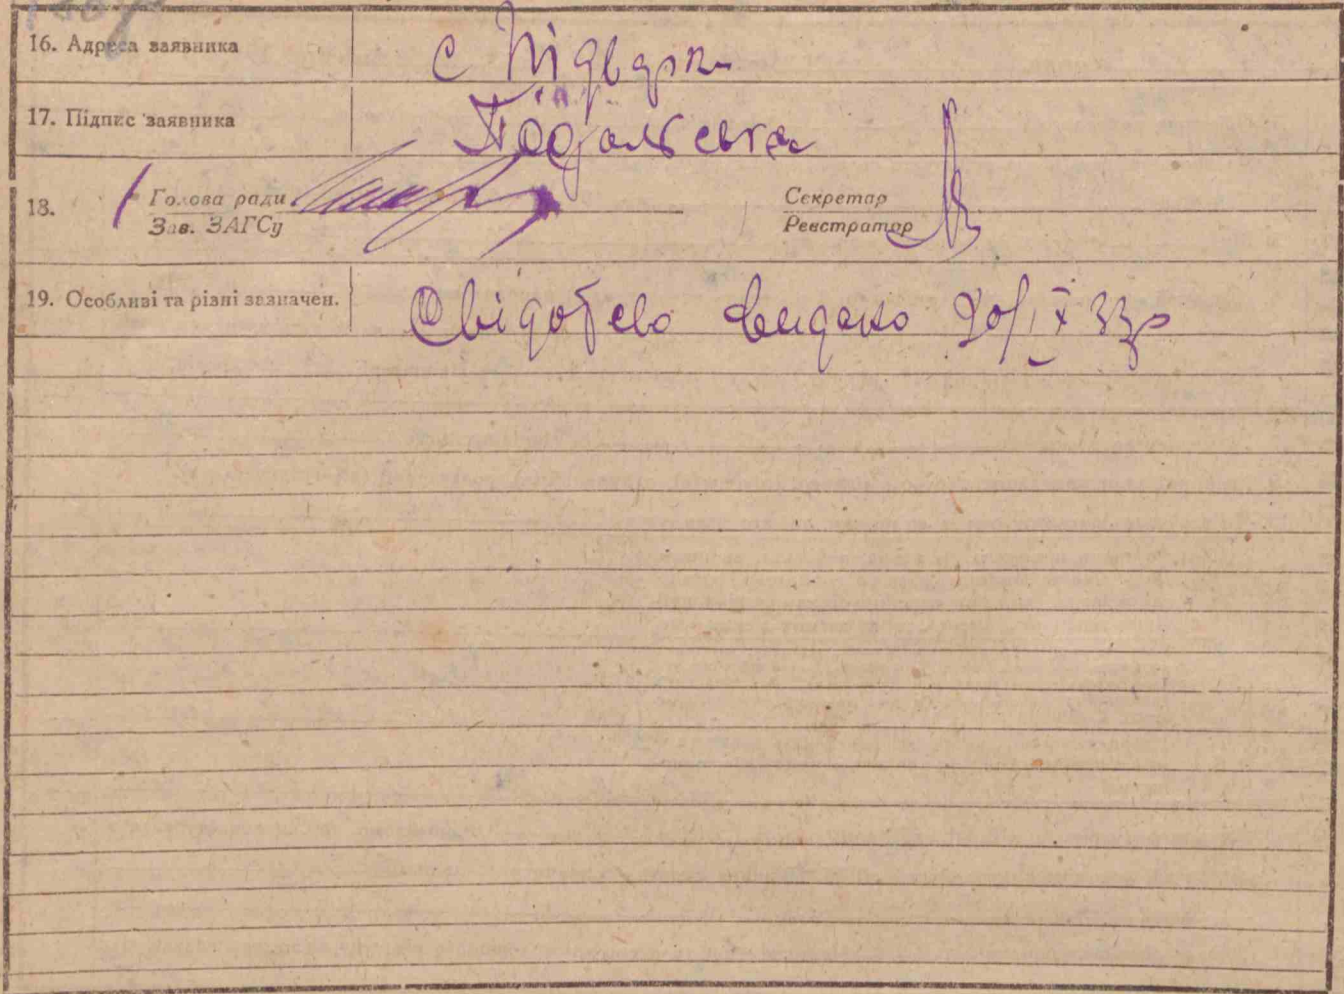 16. Адреса заявника с Підварки
17. Підпис заявника Подольська
18. Голова ради Секретар
Зав. ЗАГСу Реєстратор
19. Особливі та різні зазначен. Свідотсво видано 20/ІХ 33р